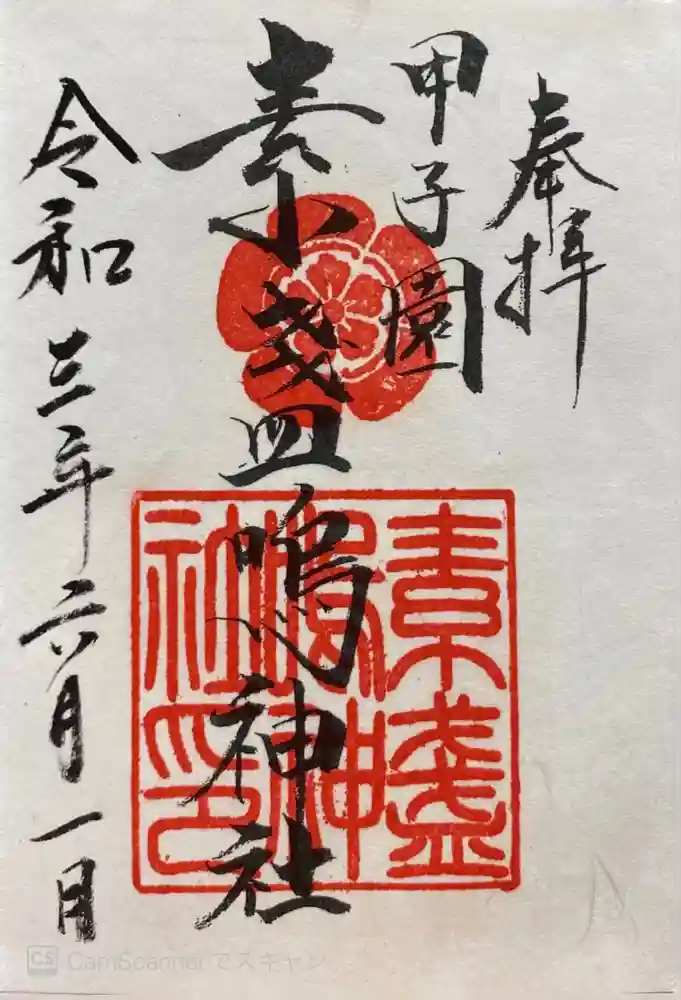 奉拝
甲子園
素盞嗚神社
素盞
嗚神
社印
令和三年六月一日
CS CamScanner でスキャン